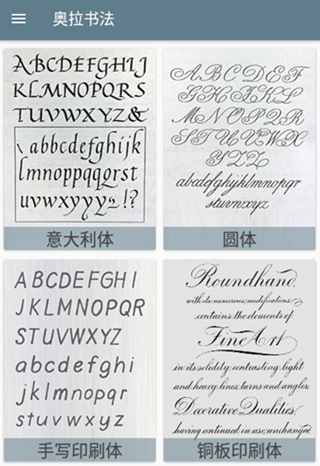 奥拉书法
ABCDEFGHIJ
KLMNOPQRS
TUVWXYZ&
abbcdefghijk
lmnoppqqrst
uvwxyyyz!?
意大利体
ABCDEF
GHIJKL
MNOPQR
STUVWX
YZZ
abcdefghijklmnopqr
stuvwxyz
圆体
ABCDEFGHI
JKLMNOPQR
STUVWXYZ
abcdefghi
jklmnopqr
stuvwxyz
手写印刷体
Roundhand,
with its numerous modifications
contains the elements of
Fine Art
in its solidity, contrasting light
and heavy lines, turns and angles.
Decorative Qualities,
having continued in use, unchanged
铜板印刷体